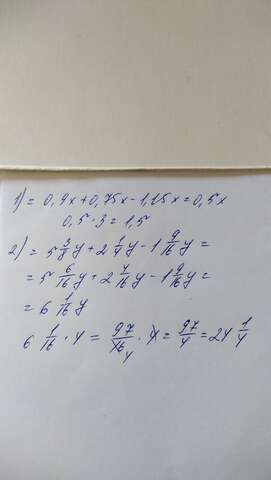 1) = 0,9x+0,75x-1,15x=0,5x
0,5·3=1,5
2) = 5 3/8 y + 2 1/4 y - 1 9/16 y =
= 5 6/16 y + 2 4/16 y - 1 9/16 y =
= 6 1/16 y
6 1/16 · 4 = 97/16 4 · 4 = 97/4 = 24 1/4